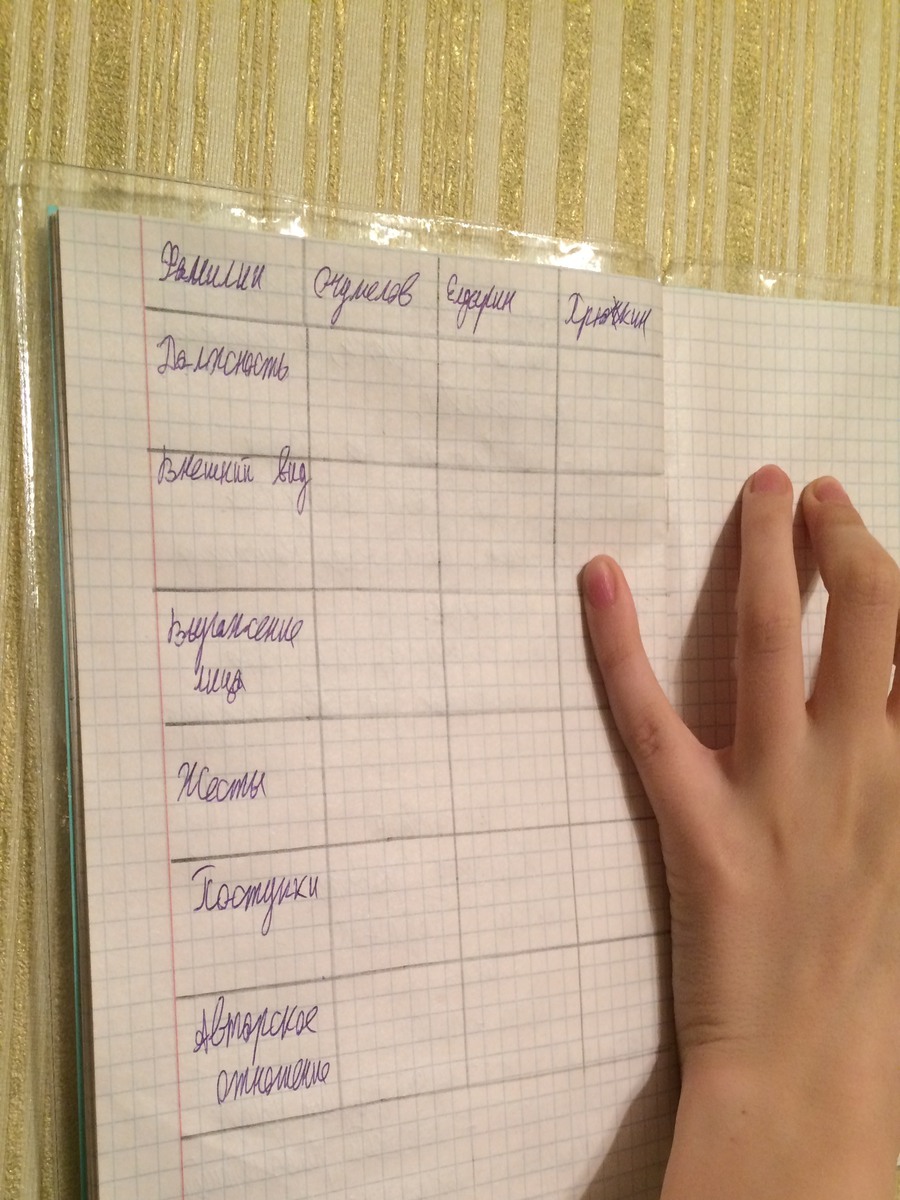 Фамилии Очумелов Елдырин Хрюкин
Должность
Внешний вид
Выражение
лица
Жесты
Поступки
Авторское
отношение